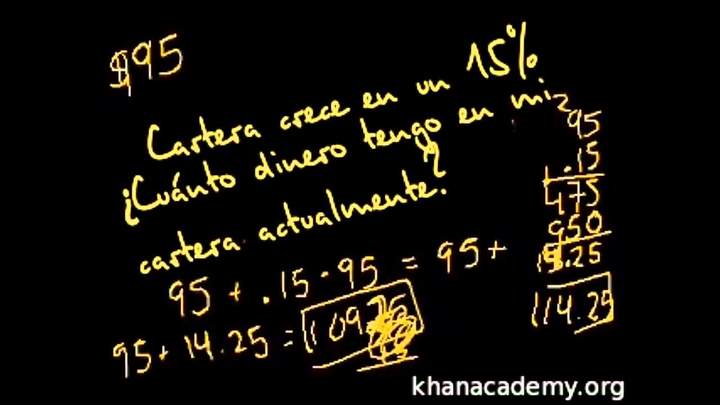 $95
Cartera crece en un 15%
¿Cuánto dinero tengo en mi
cartera actualmente?
95 + .15 · 95 = 95 +
95 + 14.25 = 109.25
2
95
.15
475
950
.25
114.25
khanacademy.org